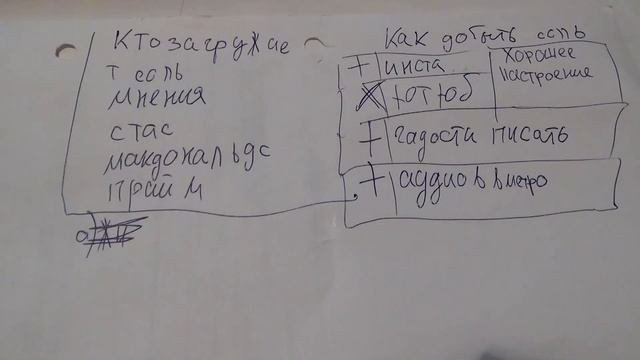 Кто загружае
т соль
мнения
стас
макдональдс
прайм
Как добыть соль
+ инста
Хорошее
настроение
X ютюб
+ гадости писать
+ аудио в метро